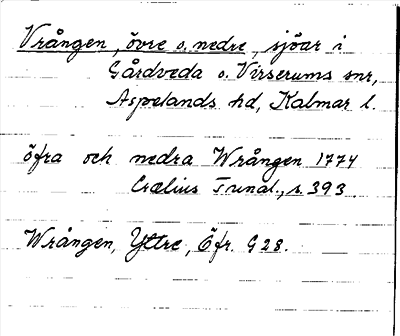 Vrången, övre o. nedre, sjöar i
Gårdveda o. Virserums snr,
Aspelands hd, Kalmar l.
öfra och nedra Wrången 1774
Crælius Tunal., s. 393.
Wrången, Yttre, Öfr. G28.